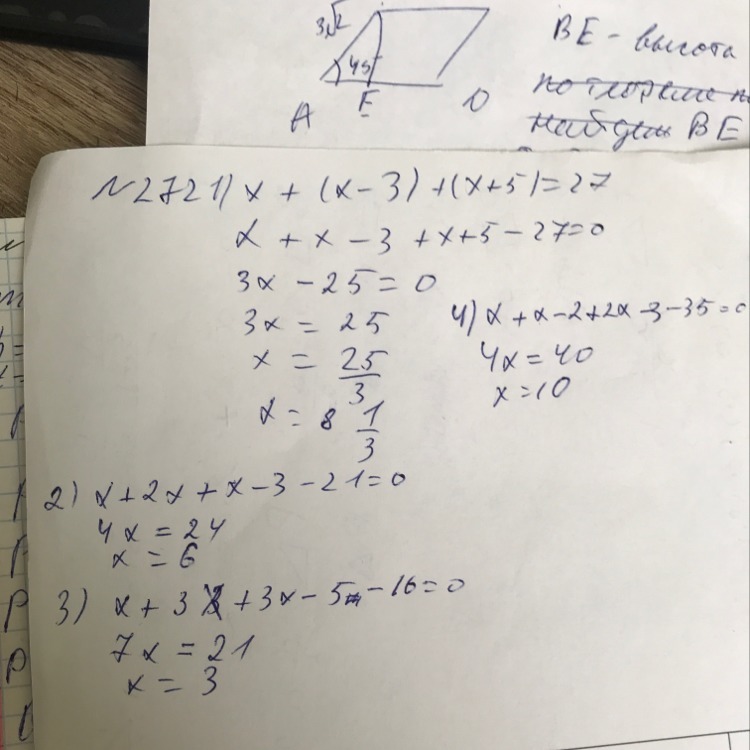 3√2
45
A E D
BE - высота
по теореме
найдем BE
№272 1) x + (x-3) + (x+5) = 27
x + x - 3 + x+5 - 27=0
3x - 25 = 0
3x = 25
x = 25/3
x = 8 1/3
4) x + x - 2 + 2x - 3 - 35 = 0
4x = 40
x = 10
2) x + 2x + x - 3 - 21 = 0
4x = 24
x = 6
3) x + 3x + 3x - 5 - 16 = 0
7x = 21
x = 3